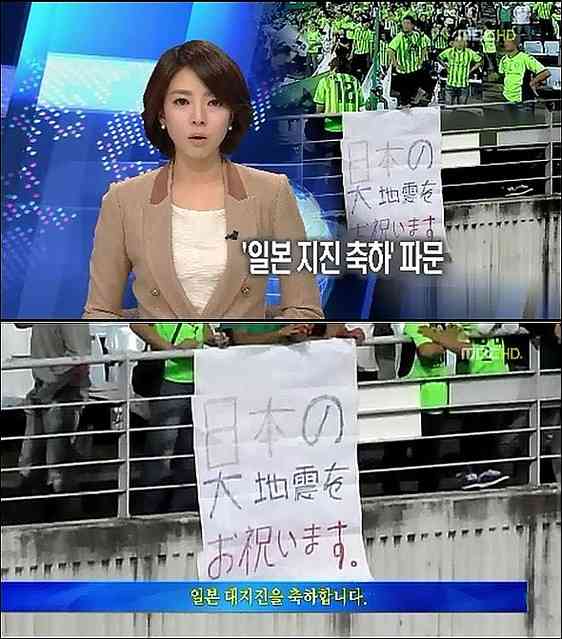 MBC HD
12
日本の
大地震を
お祝います
'일본 지진 축하' 파문
MBC HD.
日本の
大地震を
お祝います。
일본 대지진을 축하합니다.